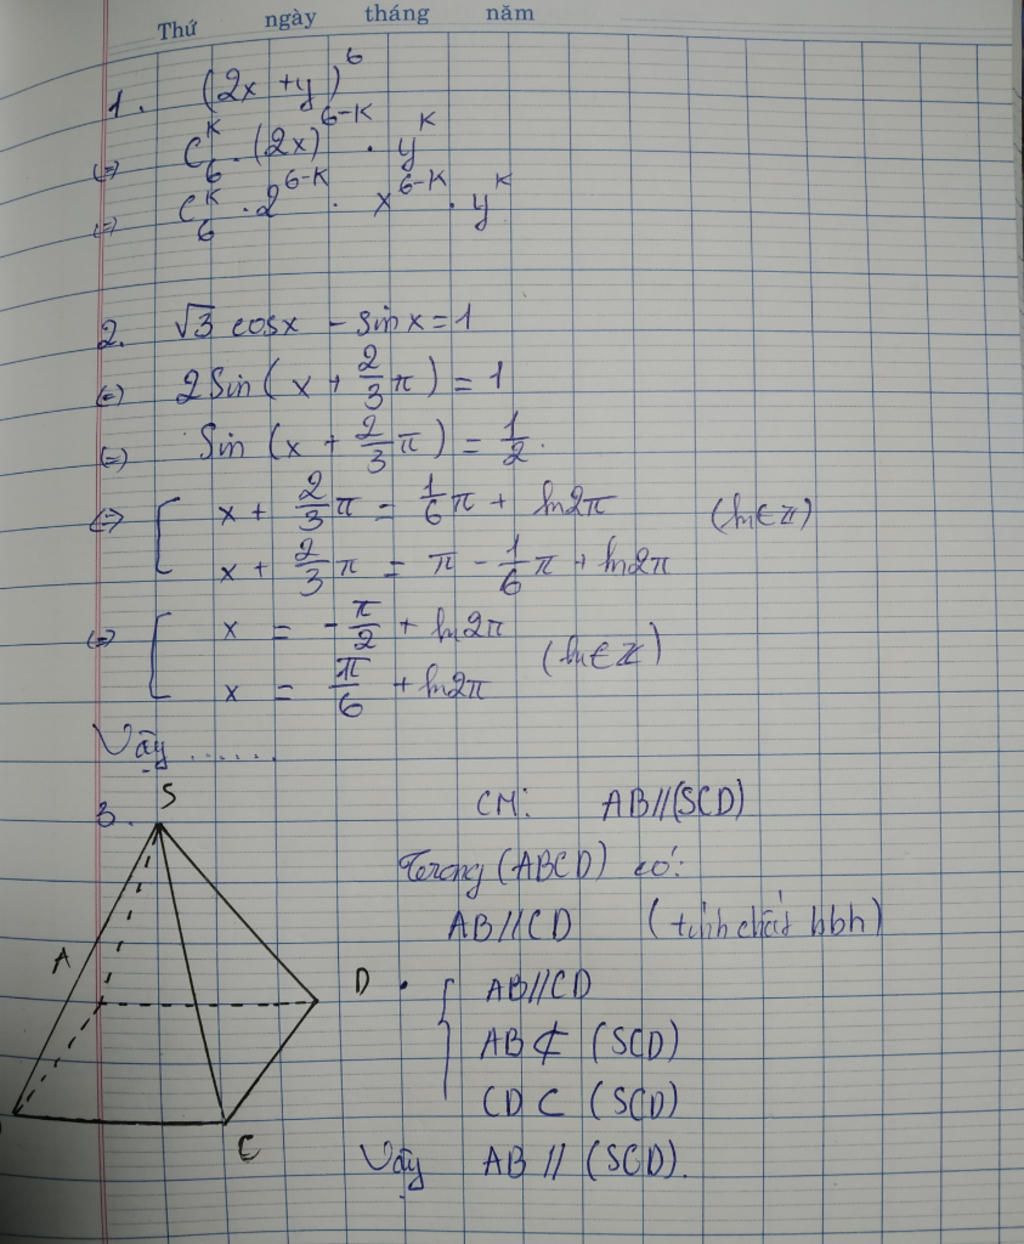 Thứ ngày tháng năm
1. (2x + y)^6
(=) C_6^K . (2x)^{6-K} . y^K
(=) C_6^K . 2^{6-K} . x^{6-K} . y^K
2. √3 cosx - sinx = 1
(=) 2 Sin (x + 2/3 π) = 1
(=) Sin (x + 2/3 π) = 1/2.
(=) [ x + 2/3 π = 1/6 π + k2π (k∈Z)
x + 2/3 π = π - 1/6 π + k2π
(=) [ x = -π/2 + k2π (k∈Z)
x = π/6 + k2π
Vậy ......
3. S
A
D
C
CM: AB//(SCD)
Trong (ABCD) có:
AB//CD (tính chất hbh)
. { AB//CD
AB ⊄ (SCD)
CD ⊂ (SCD)
Vậy AB // (SCD).